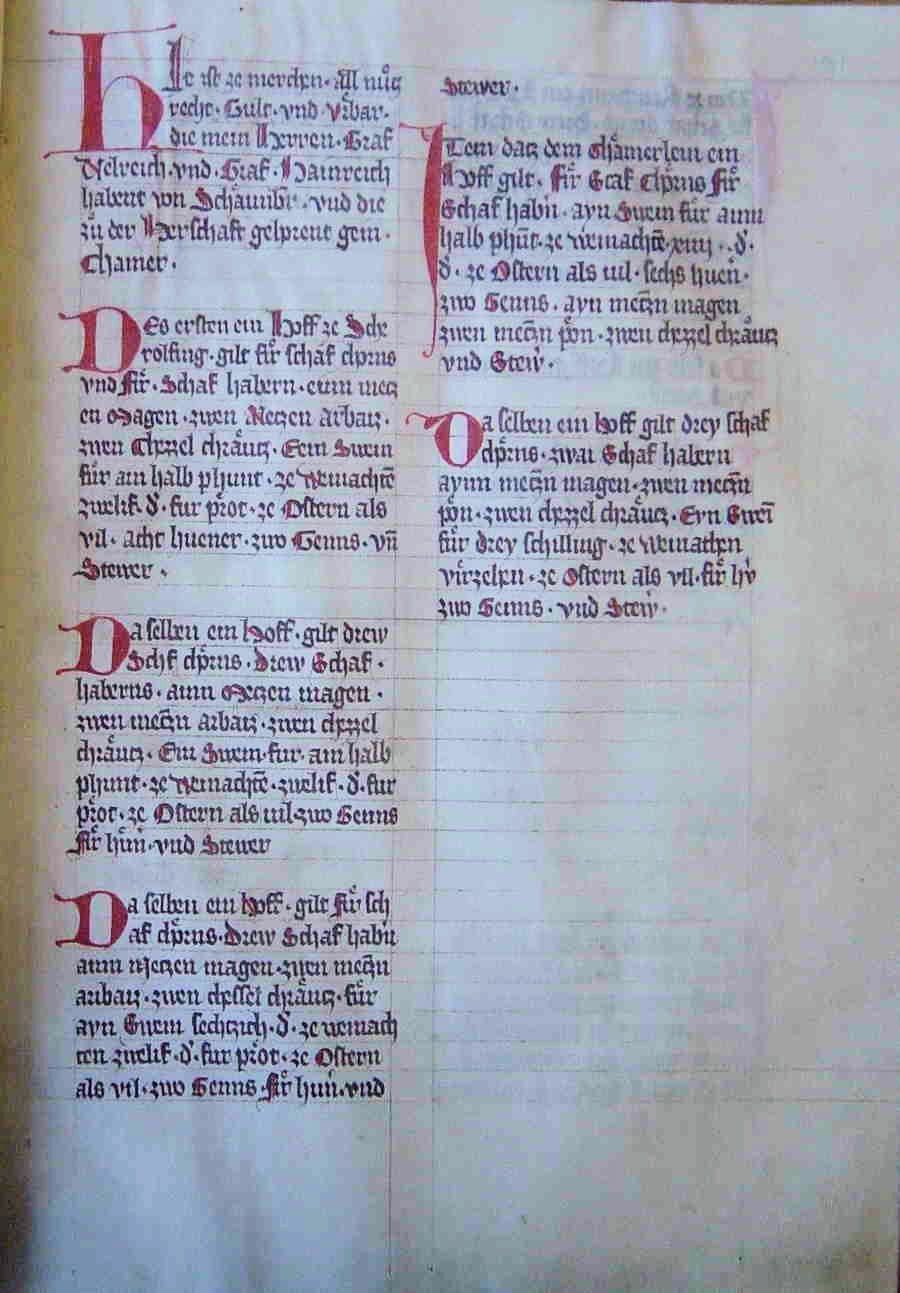 HIe ist ze merchen. All nutz
recht. Gult. vnd Vrbar.
die mein Herren. Graf
Velreich. vnd Graf. Hainreich
habent von Schaunbr. vnd die
zů der Herschaft gelpent gem.
Chamer.
DEs ersten ein Hoff ze Sche
rolfing. gilt fir schaf chorns
vnd fir. Schaf habern. einn metz
en Magen. zwen Metzen arbaiz.
zwen Chezzel chräutz. Eein Swein
für ain halb phunt. ze Weinachtē
zwelif. d. fur prot. ze Ostern als
vil. acht huener. zwo Genns. vn̄
Stewer.
Da selben ein Hoff. gilt drew
Schf chorns. Drew Schaf.
haberns. ainn Metzen magen.
zwen meczn arbaiz. zwen chezzel
chräutz. Ein Swein. fur. ain halb
phunt. ze Weinachtē. zwelif. d. fur
prot. ze Ostern als uil. zwo Genns
fir hun. vnd Stewer
Da selben ein Hoff. gilt fir sch
af chorns. Drew Schaf habn
ainn Metzen magen. zwen meczn
arbaiz. zwen chessel chräutz. für
ayn Swein sechtzich. d. ze weinach
ten zwelif. d. fur prot. ze Ostern
als vil. zwo Genns. fir hun. vnd
Stewer.
ITem datz dem Chamerlein ein
Hoff gilt. fir Scaf Chorns fir
Schaf habn. ayn Swein für ainn
halb phūt. ze weinachtē. xiiij. d.
d. ze Ostern als uil. sechs huen.
zwo Genns. ayn meczn magen
zwen meczn pon. zwen chezzel chräutz
vnd Stew.
Da selben ein Hoff gilt drey schaf
chorns. zwai Schaf habern
aynn meczn magen. zwen meczn
pon. zwen chezzel chräutz. Eyn Swei
für drey schilling. ze Weinachen
virzehen. ze Ostern als vil. fir hv
zwo Genns. vnd Stew.